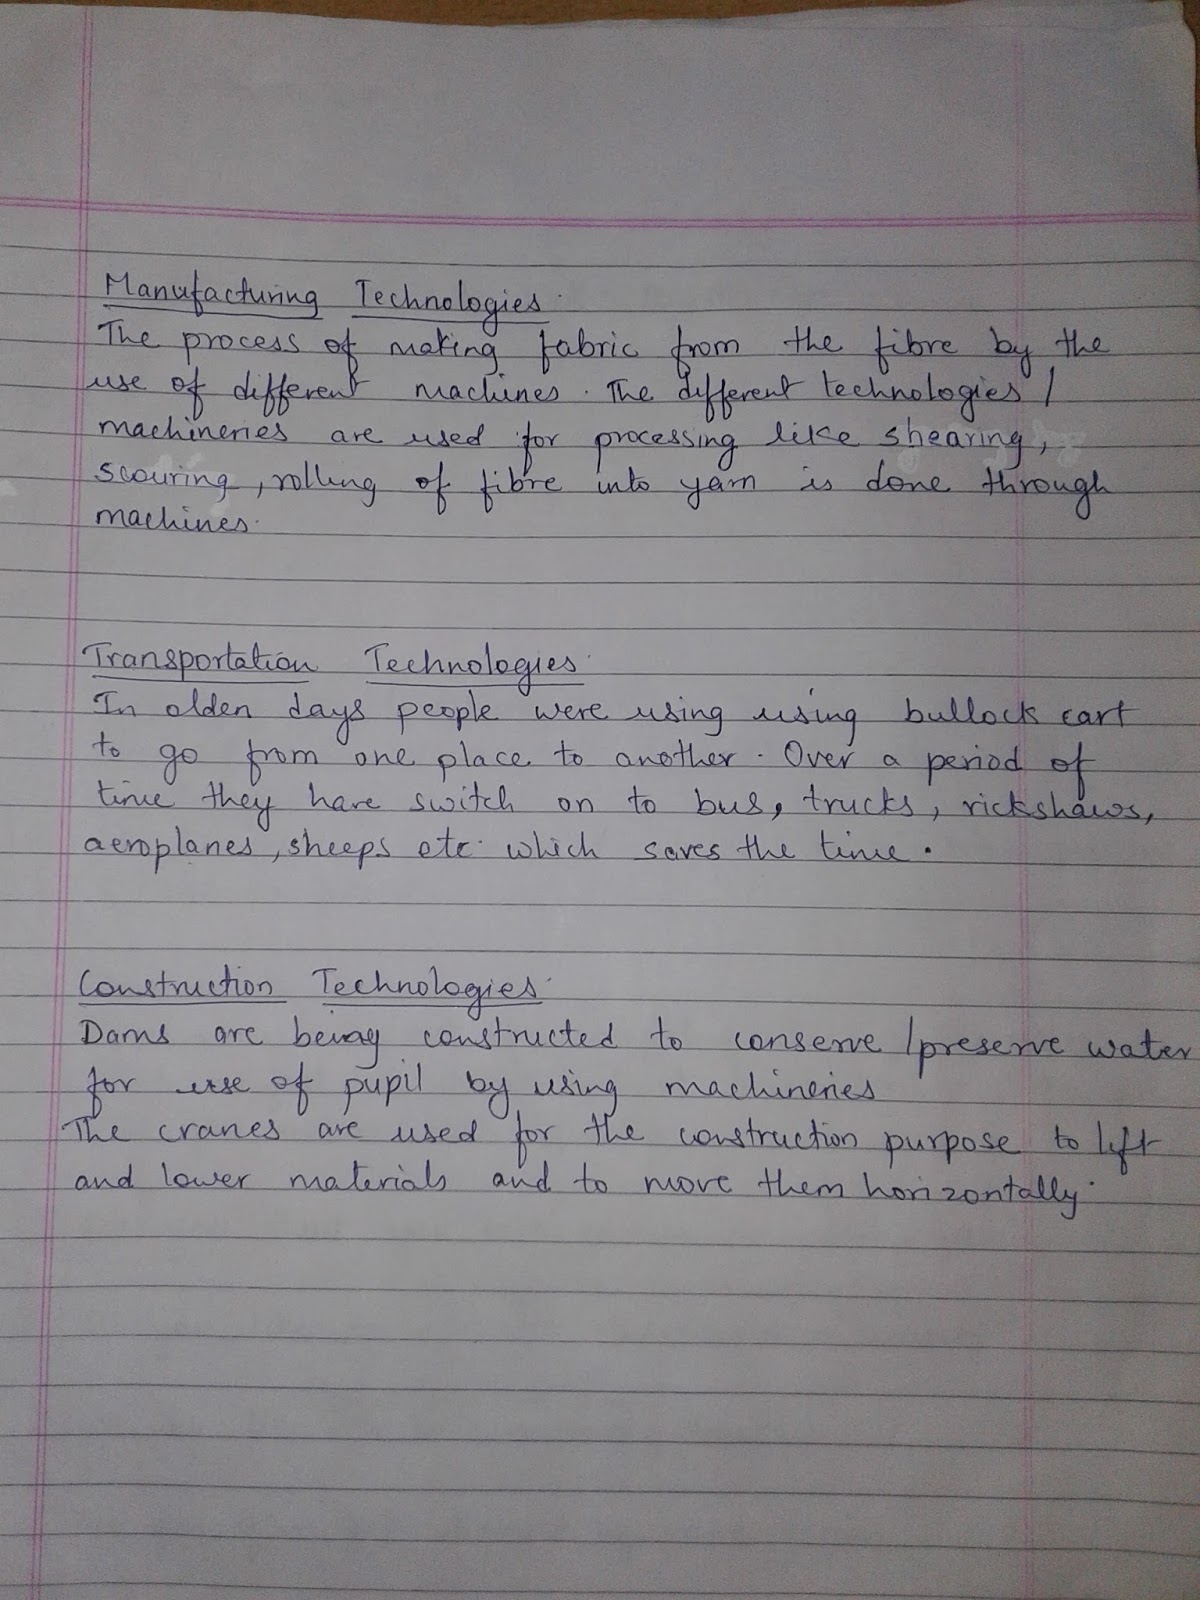 Manufacturing Technologies.
The process of making fabric from the fibre by the
use of different machines. The different technologies /
machineries are used for processing like shearing,
scouring, rolling of fibre into yarn is done through
machines.
Transportation Technologies.
In olden days people were using using bullock cart
to go from one place to another. Over a period of
time they have switch on to bus, trucks, rickshaws,
aeroplanes, sheeps etc. which saves the time.
Construction Technologies.
Dams are being constructed to conserve / preserve water
for use of pupil by using machineries
The cranes are used for the construction purpose to lift
and lower materials and to move them horizontally.